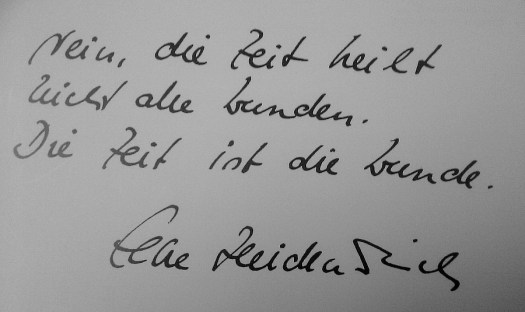 Nein, die Zeit heilt
nicht alle Wunden.
Die Zeit ist die Wunde.
Elke Heidenreich